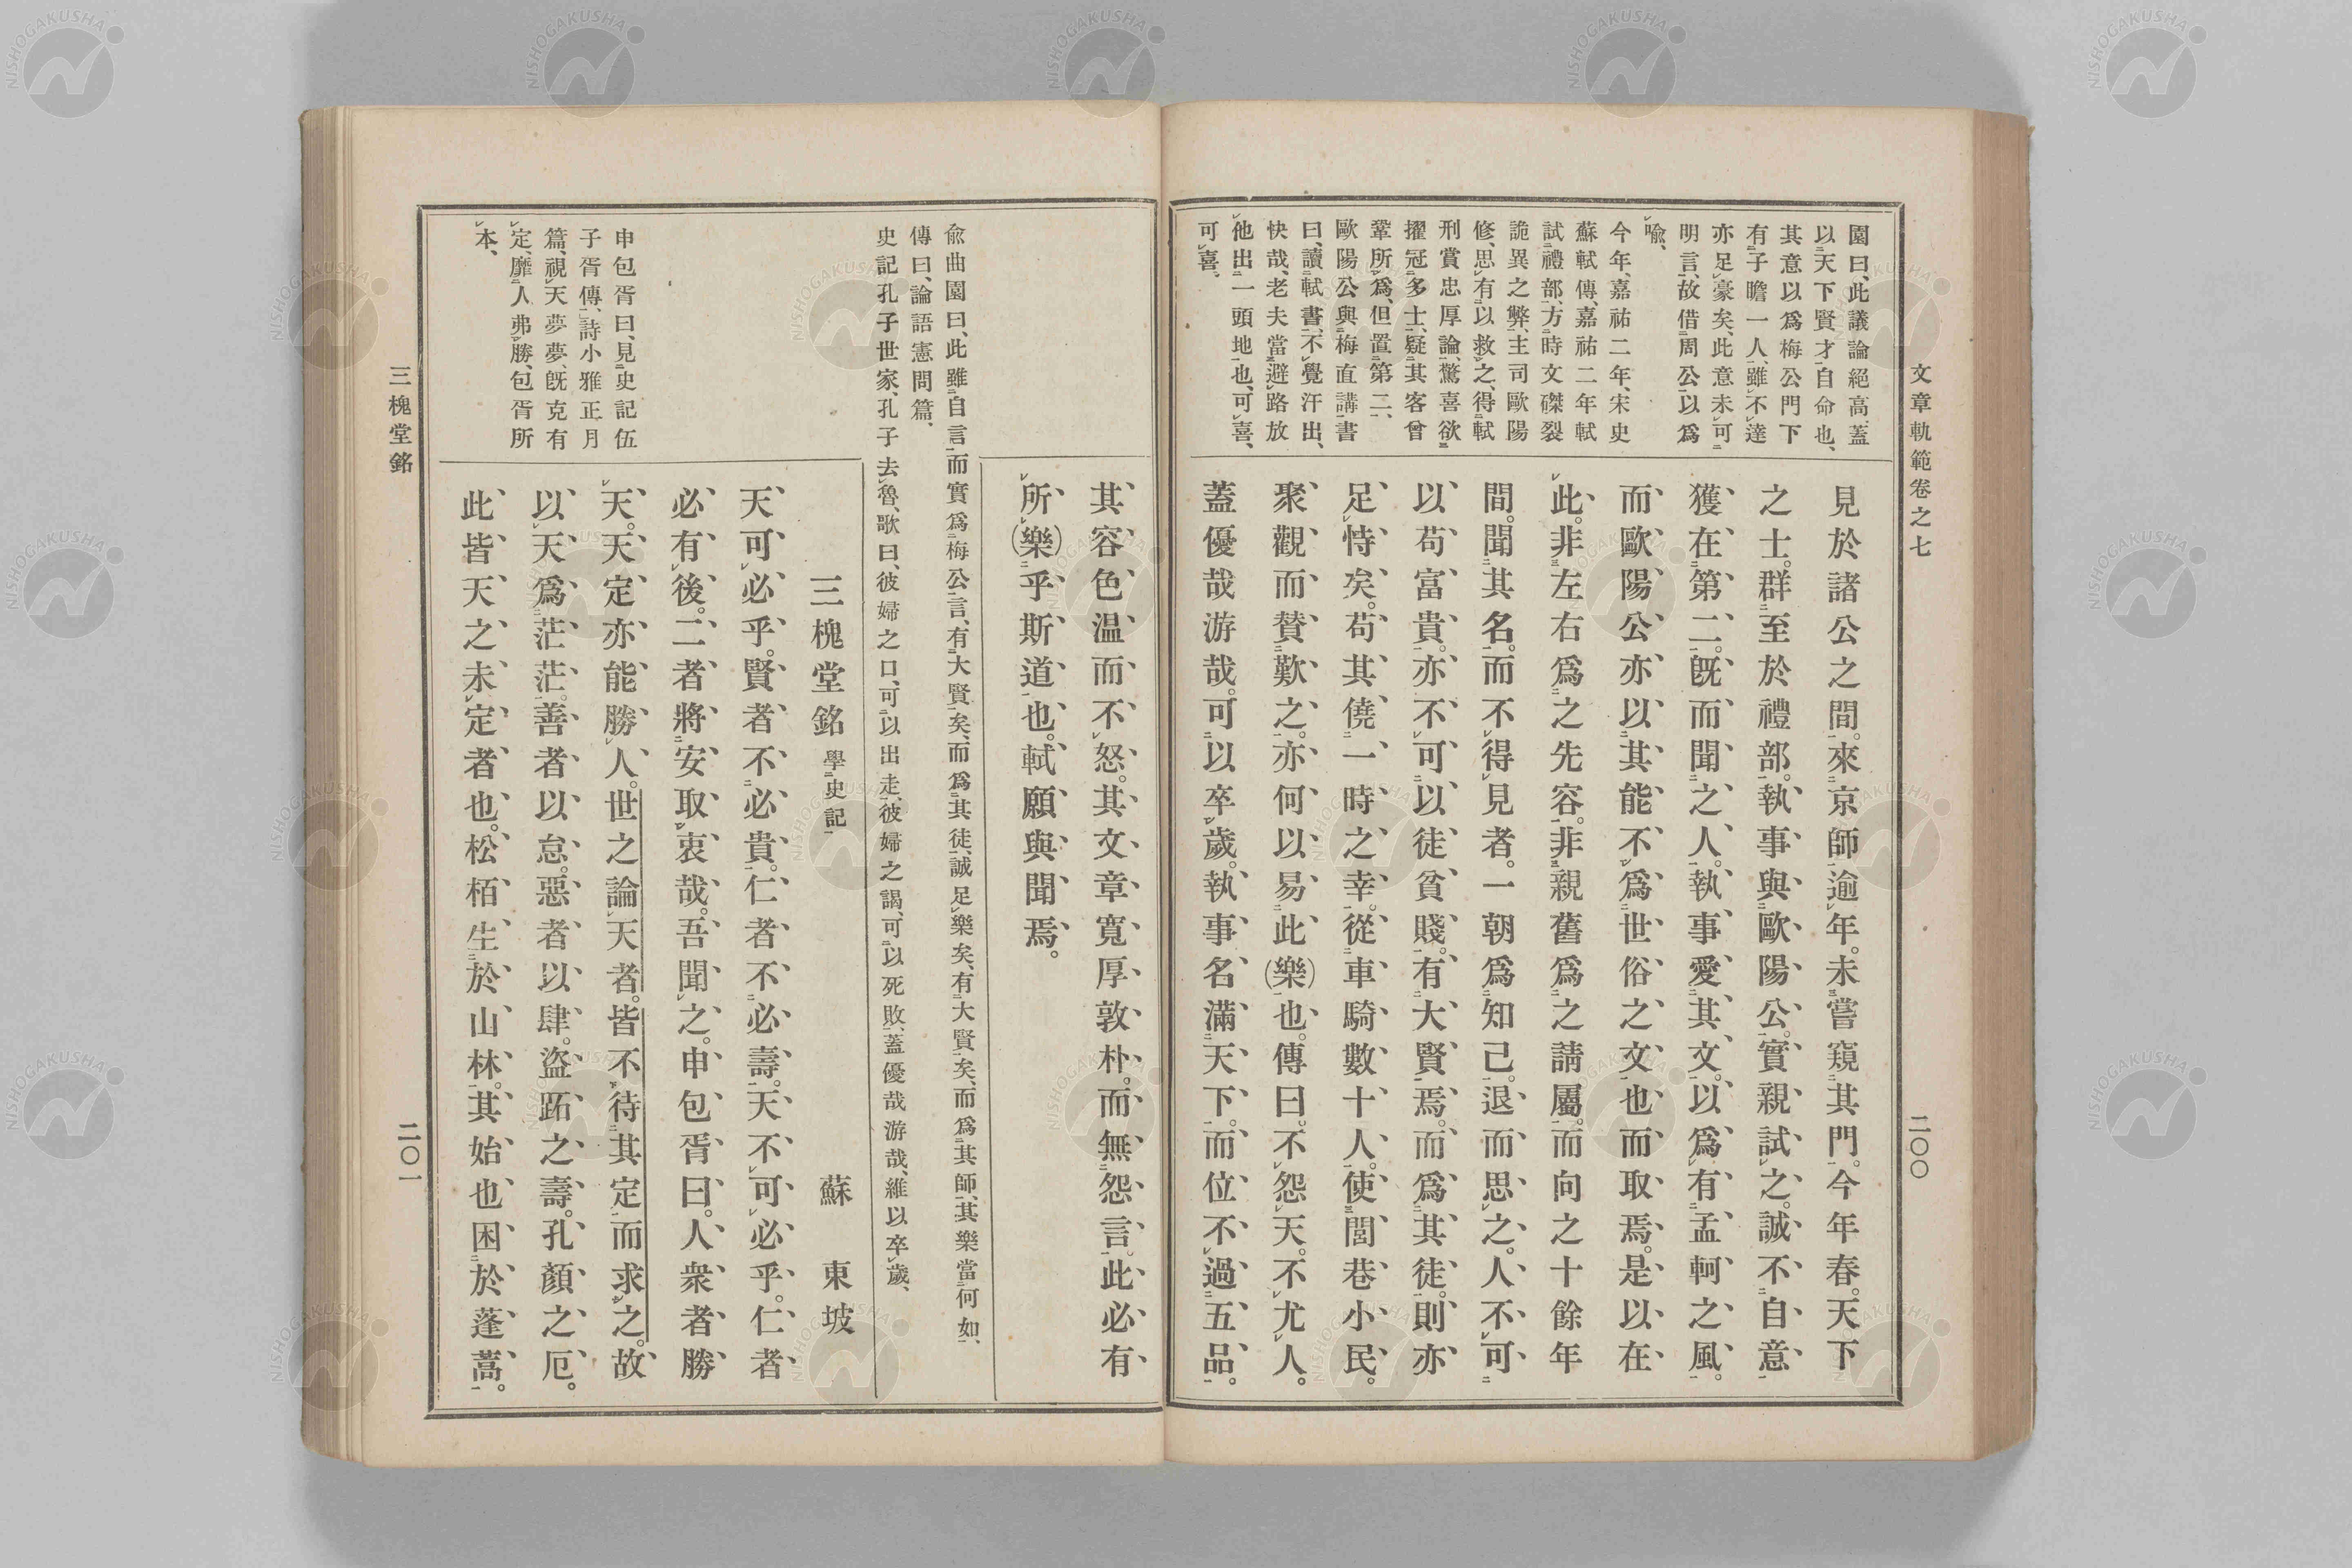 文章軌範卷之七
二〇〇
園曰、此議論絕高、蓋
以天下賢才自命也、
其意以爲梅公門下
有子瞻一人、雖不達
亦足豪矣、此意未可
明言、故借周公以爲
喩、
今年、嘉祐二年、宋史
蘇軾傳、嘉祐二年軾
試禮部、方時文磔裂
詭異之弊、主司歐陽
修、思有以救之、得軾
刑賞忠厚論、驚喜欲
擢冠多士、疑其客曾
鞏所爲、但置第二、
歐陽公與梅直講書
曰、讀軾書、不覺汗出、
快哉、老夫當避路放
他出一頭地也、可喜、
可喜、
見於諸公之間。來京師逾年。未嘗窺其門。今年春。天下
之士。群至於禮部。執事與歐陽公。實親試之。誠不自意
獲在第二。旣而聞之人。執事愛其文。以爲有孟軻之風。
而歐陽公亦以其能不爲世俗之文也而取焉。是以在
此。非左右爲之先容。非親舊爲之請屬。而向之十餘年
間。聞其名。而不得見者。一朝爲知己。退而思之。人不可
以苟富貴。亦不可以徒貧賤。有大賢焉。而爲其徒。則亦
足恃矣。苟其僥一時之幸。從車騎數十人。使閭巷小民。
聚觀而贊歎之。亦何以易此(樂)也。傳曰。不怨天。不尤人。
蓋優哉游哉。可以卒歲。執事名滿天下。而位不過五品。
其容色温而不怒。其文章寬厚敦朴。而無怨言。此必有
所(樂)乎斯道也。軾願與聞焉。
兪曲園曰、此雖自言、而實爲梅公言、有大賢矣、而爲其徒、誠足樂矣、有大賢矣、而爲其師、其樂當何如、
傳曰、論語憲問篇、
史記孔子世家、孔子去魯、歌曰、彼婦之口、可以出走、彼婦之謁、可以死敗、蓋優哉游哉、維以卒歲、
三槐堂銘 學史記 蘇東坡
天可必乎。賢者不必貴。仁者不必壽。天不可必乎。仁者
必有後。二者將安取衷哉。吾聞之。申包胥曰。人衆者勝
天。天定亦能勝人。世之論天者。皆不待其定而求之。故
以天爲茫茫。善者以怠。惡者以肆。盜跖之壽。孔顏之厄。
此皆天之未定者也。松栢生於山林。其始也困於蓬蒿。
申包胥曰、見史記伍
子胥傳、詩小雅正月
篇、視天夢夢、旣克有
定、靡人弗勝、包胥所
本、
三槐堂銘
二〇一